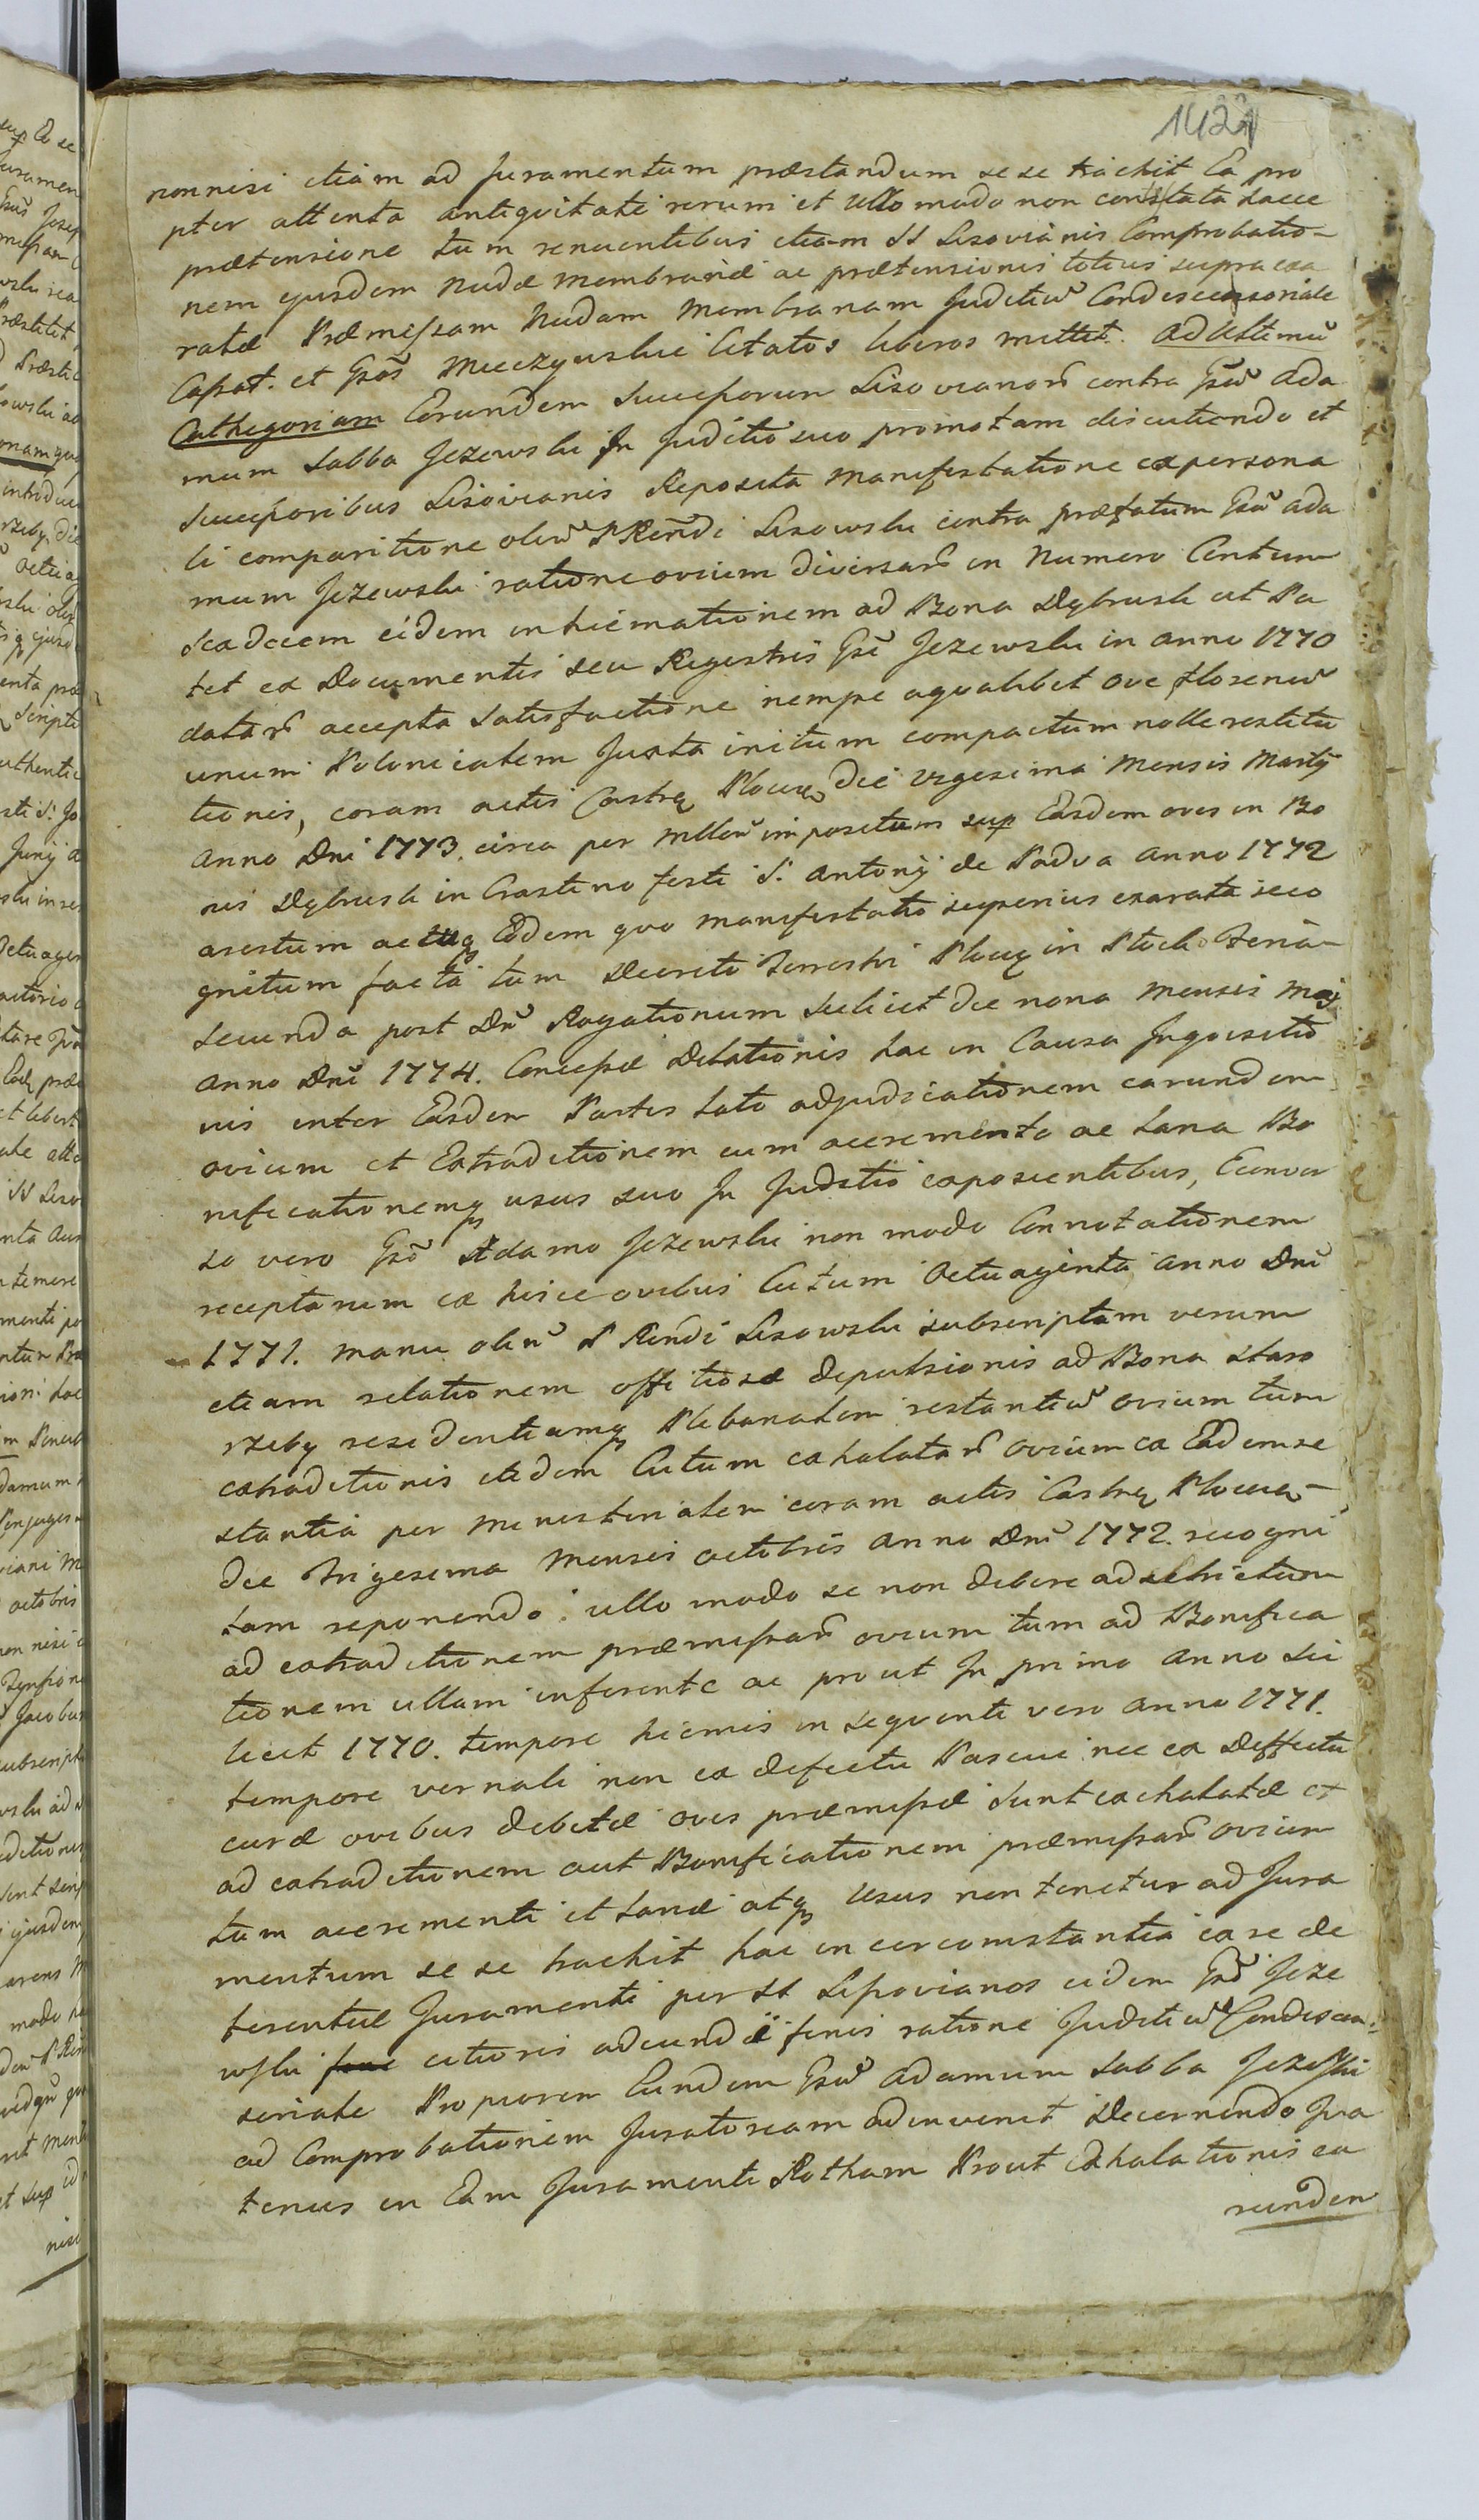 1421
nonnisi etiam ad Juramentum præstandum se se trachit Ea pro
pter attenta antiqvitate rerum et ullo modo non constata haecce
prætensione tum renuentibus etiam SS Lisovianis Comprobatio-
nem ejusdem Nudæ Membranæ ac prætensionis totius supra exa
ratæ Præmissam Nudam Membranam Juditiũ Condescensoriale
Cassat. et Gsos Mieczynskie Citatos liberos mittit. Ad Ultimũ
Cathegoriam Eorundem Successorum Lisovianorũ contra Gsũ Ada
mum Sabba Jezewski In Juditio suo promotam discutiendo et
Successoribus Lisovianis Reposita Manifestatione ex persona
li comparitione olim P Rendi Lisowski contra præfatum Gsũ Ada
mum Jezewski ratione ovium diversarũ in Numero Centum
Sexdecem eidem in hiemationem ad Bona Dębrusk ut Pa
tet ex Documentis seu Regestris Gsi Jezewski in anno 1770
datarũ accepta Satisfactione nempe a qvalibet ove florenũ
unum Polonicalem Juxta initum compactum nolle restitu
tionis, coram actis Castrę Plocen die vigesima Mensis Martij
Anno Dni 1773. circa per Mllem impositum sup Easdem oves in Bo
nis Dębrusk in Crastino festi S. Antonij de Padua anno 1772
arestum actuq Eodem quo manifestatio superius exarata reco
gnitum facta tum Decreti Terrestri Plocę in Plocko Feria
Secunda post Dnũ Rogationum Scilicet die nona Mensis Maj
Anno Dni 1774. Concessæ Dilationis hac in Causa Inqvisitio
nis inter Easdem Partes lato adjudicationem earundem
ovium et Extraditionem cum accremento ac Lana Bo
nificationemq usus suo In Juditio exposcentibus, Econver
so vero Gso Adamo Jezewski non modo Connotationem
receptarum ex hisce ovibus Cutum Octuaginta Anno Dni
1771. manu olim P Rendi Lisowski subscriptam verum
etiam relationem offitiosæ depulsionis ad Bona Staro
rzeby residentiamq Plebanalem restantiũ ovium tum
extraditionis itidem Cutum exhalatarũ ovium ex Eadem se
stantia per Ministerialem coram actis Castrę Plocen
die Trigesima Mensis octobris Anno Dni 1772. recogni
tam reponendo. ullo modo se non debere adstrictum
ad extraditionem præmissarũ ovium tum ad Bonifica
tionem ullam inferente ac prout In primo Anno Sci
licet 1770. tempore hiemis in Seqventi vero anno 1771.
tempore vernali non ex defectu Pascui nec ex Deffectu
curæ ovibus debitæ oves præmissæ sunt exhalatæ et
ad extraditionem aut Bonificationem præmissarũ ovium
tum accrementi et Lanæ atq usus non tenetur ad Jura
mentum se se trachit hac in circumstantia ea re de
ferentiæ Juramenti per SS Lissovianos eidem Gso Jeze
wski citioris adeundi finis ratione Juditiũ Condescen-
soriale Propiorem Eundem Gsũ Adamum Sabba Jezewski
ad Comprobationem Juratoream adinvenit Decernendo Jura
tenus in Eam Juramenti Rotham Prout Exhalationis ea
rundem